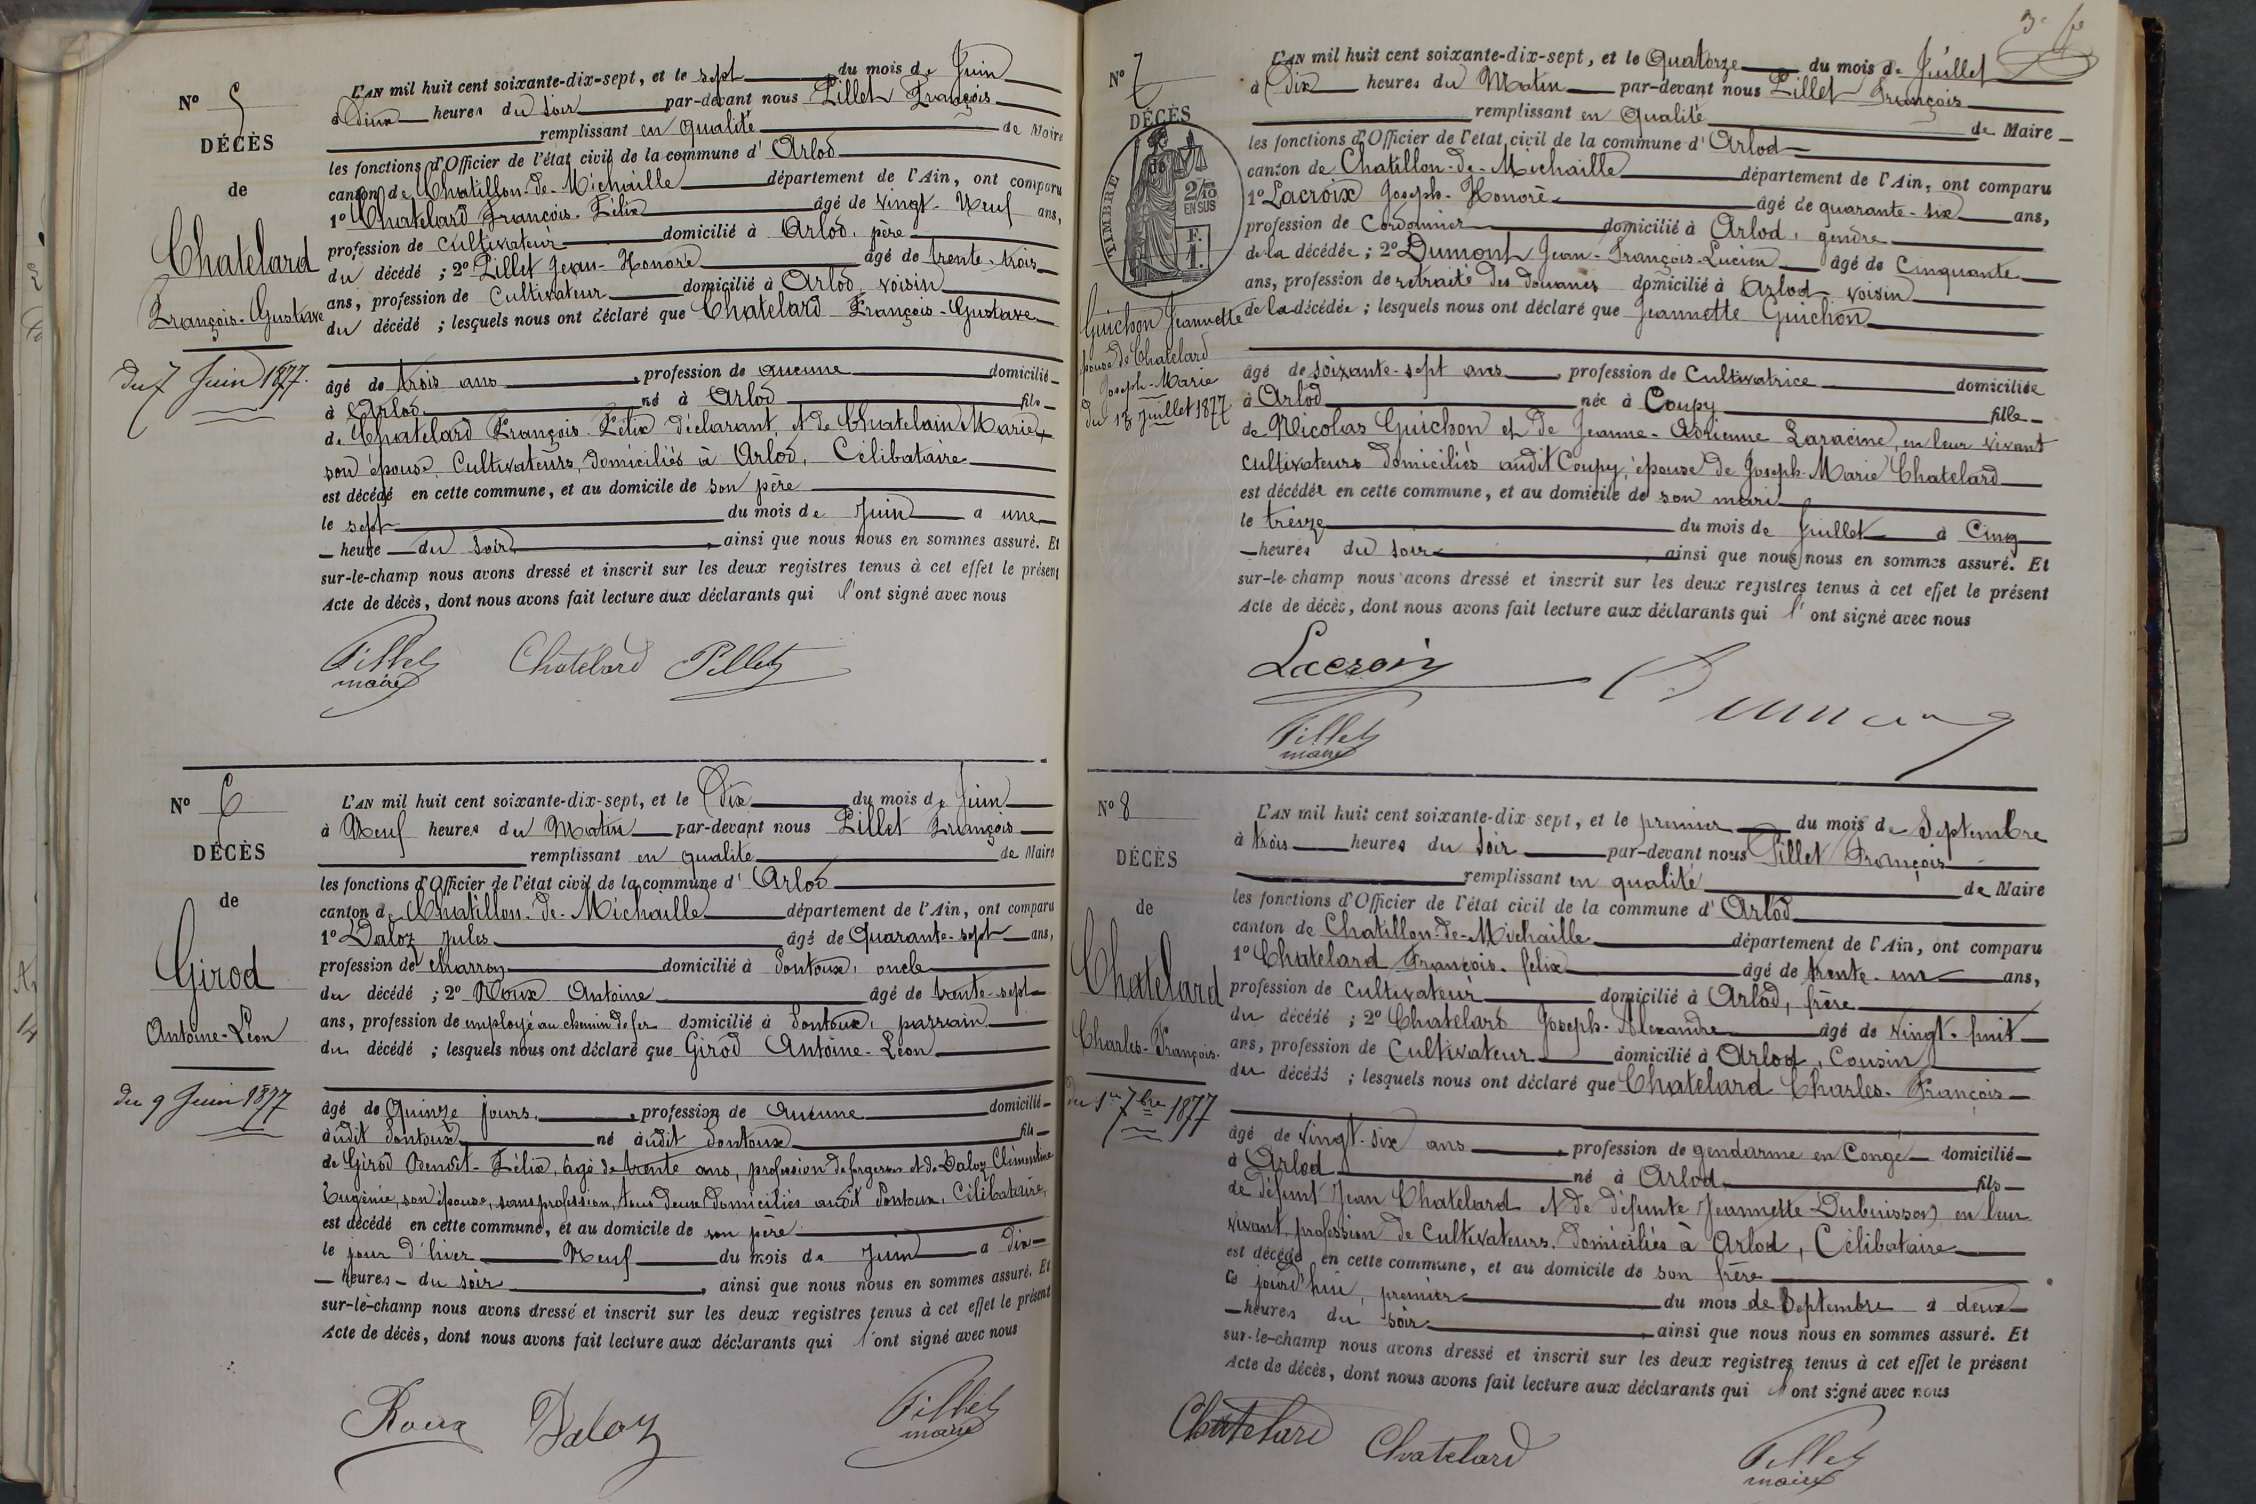 N° 5
DÉCÈS
de
Chatelard
François-Gustave
du 7 Juin 1877.
L'AN mil huit cent soixante-dix-sept, et le sept du mois de Juin
à Deux heures du soir par-devant nous Pillet François
remplissant en qualité de Maire
les fonctions d'Officier de l'état civil de la commune d' Arlod
canton de Chatillon-de-Michaille département de l'Ain, ont comparu
1° Chatelard François-Félix âgé de vingt-Neuf ans,
profession de cultivateur domicilié à Arlod, père
du décédé ; 2° Pillet Jean-Honoré âgé de trente-trois
ans, profession de Cultivateur domicilié à Arlod, voisin
du décédé ; lesquels nous ont déclaré que Chatelard François-Gustave
âgé de trois ans, profession de aucune domicilié
à Arlod né à Arlod fils
de Chatelard François Félix déclarant, et de Chatelain Marie
son épouse, Cultivateurs, domiciliés à Arlod, Célibataire
est décédé en cette commune, et au domicile de son père
le sept du mois de Juin à une
heure du soir, ainsi que nous nous en sommes assuré. Et
sur-le-champ nous avons dressé et inscrit sur les deux registres tenus à cet effet le présent
Acte de décès, dont nous avons fait lecture aux déclarants qui l'ont signé avec nous
Pillet Chatélard Pillet
maire
N° 6
DÉCÈS
de
Girod
Antoine-Léon
du 9 Juin 1877
L'AN mil huit cent soixante-dix-sept, et le Dix du mois de Juin
à Neuf heures du Matin par-devant nous Pillet François
remplissant en qualité de Maire
les fonctions d'Officier de l'état civil de la commune d' Arlod
canton de Chatillon-de-Michaille département de l'Ain, ont comparu
1° Daloz Jules âgé de Quarante-sept ans,
profession de charron domicilié à Pontoux, oncle
du décédé ; 2° Roux Antoine âgé de trente-sept
ans, profession de employé au chemin de fer domicilié à Pontoux, parrain
du décédé ; lesquels nous ont déclaré que Girod Antoine-Léon
âgé de Quinze jours, profession de Aucune domicilié
audit Pontoux né audit Pontoux fils
de Girod Benoît-Félix, âgé de trente ans, profession de forgeron et de Daloz Clémentine
Eugénie, son épouse, sans profession, tous deux domiciliés audit Pontoux, Célibataire,
est décédé en cette commune, et au domicile de son père
le jour d'hier Neuf du mois de Juin à dix
heures du soir, ainsi que nous nous en sommes assuré. Et
sur-le-champ nous avons dressé et inscrit sur les deux registres tenus à cet effet le présent
Acte de décès, dont nous avons fait lecture aux déclarants qui l'ont signé avec nous
Roux Daloz Pillet
maire
N° 7
DÉCÈS
de
TIMBRE
2/10
EN SUS
F.
1.
Guichon Jeannette
épouse de Chatelard
Joseph-Marie
du 13 Juillet 1877
L'AN mil huit cent soixante-dix-sept, et le Quatorze du mois de Juillet
à Dix heures du Matin par-devant nous Pillet François
remplissant en Qualité de Maire
les fonctions d'Officier de l'état civil de la commune d' Arlod
canton de Chatillon-de-Michaille département de l'Ain, ont comparu
1° Lacroix Joseph-Honoré âgé de quarante-six ans,
profession de Cordonnier domicilié à Arlod, gendre
de la décédée ; 2° Dumont Jean-François-Lucien âgé de Cinquante
ans, profession de retraité des douanes domicilié à Arlod voisin
de la décédée ; lesquels nous ont déclaré que Jeannette Guichon
âgé de soixante-sept ans, profession de Cultivatrice domiciliée
à Arlod née à Coupy fille
de Nicolas Guichon et de Jeanne-Adrienne Laracine, en leur vivant
cultivateurs domiciliés audit Coupy, épouse de Joseph-Marie Chatelard
est décédée en cette commune, et au domicile de son mari
le treize du mois de Juillet à Cinq
heures du soir, ainsi que nous nous en sommes assuré. Et
sur-le-champ nous avons dressé et inscrit sur les deux registres tenus à cet effet le présent
Acte de décès, dont nous avons fait lecture aux déclarants qui l'ont signé avec nous
Lacroix Dumont
Pillet
maire
N° 8
DÉCÈS
de
Chatelard
Charles-François.
du 1er 7bre 1877
L'AN mil huit cent soixante-dix-sept, et le premier du mois de Septembre
à trois heures du soir par-devant nous Pillet François
remplissant en qualité de Maire
les fonctions d'Officier de l'état civil de la commune d' Arlod
canton de Chatillon-de-Michaille département de l'Ain, ont comparu
1° Chatelard François-félix âgé de trente-un ans,
profession de cultivateur domicilié à Arlod, frère
du décédé ; 2° Chatelard Joseph-Alexandre âgé de vingt-huit
ans, profession de Cultivateur domicilié à Arlod, Cousin
du décédé ; lesquels nous ont déclaré que Chatelard Charles-François
âgé de vingt-six ans, profession de gendarme en Congé domicilié
à Arlod né à Arlod fils
de défunt Jean Chatelard et de défunte Jeannette Dubuisson en leur
vivant, profession de cultivateurs, domiciliés à Arlod, Célibataire
est décédé en cette commune, et au domicile de son frère
Ce jourd'hui, premier du mois de Septembre à deux
heures du soir, ainsi que nous nous en sommes assuré. Et
sur-le-champ nous avons dressé et inscrit sur les deux registres tenus à cet effet le présent
Acte de décès, dont nous avons fait lecture aux déclarants qui l'ont signé avec nous
Chatelard Chatelard Pillet
maire